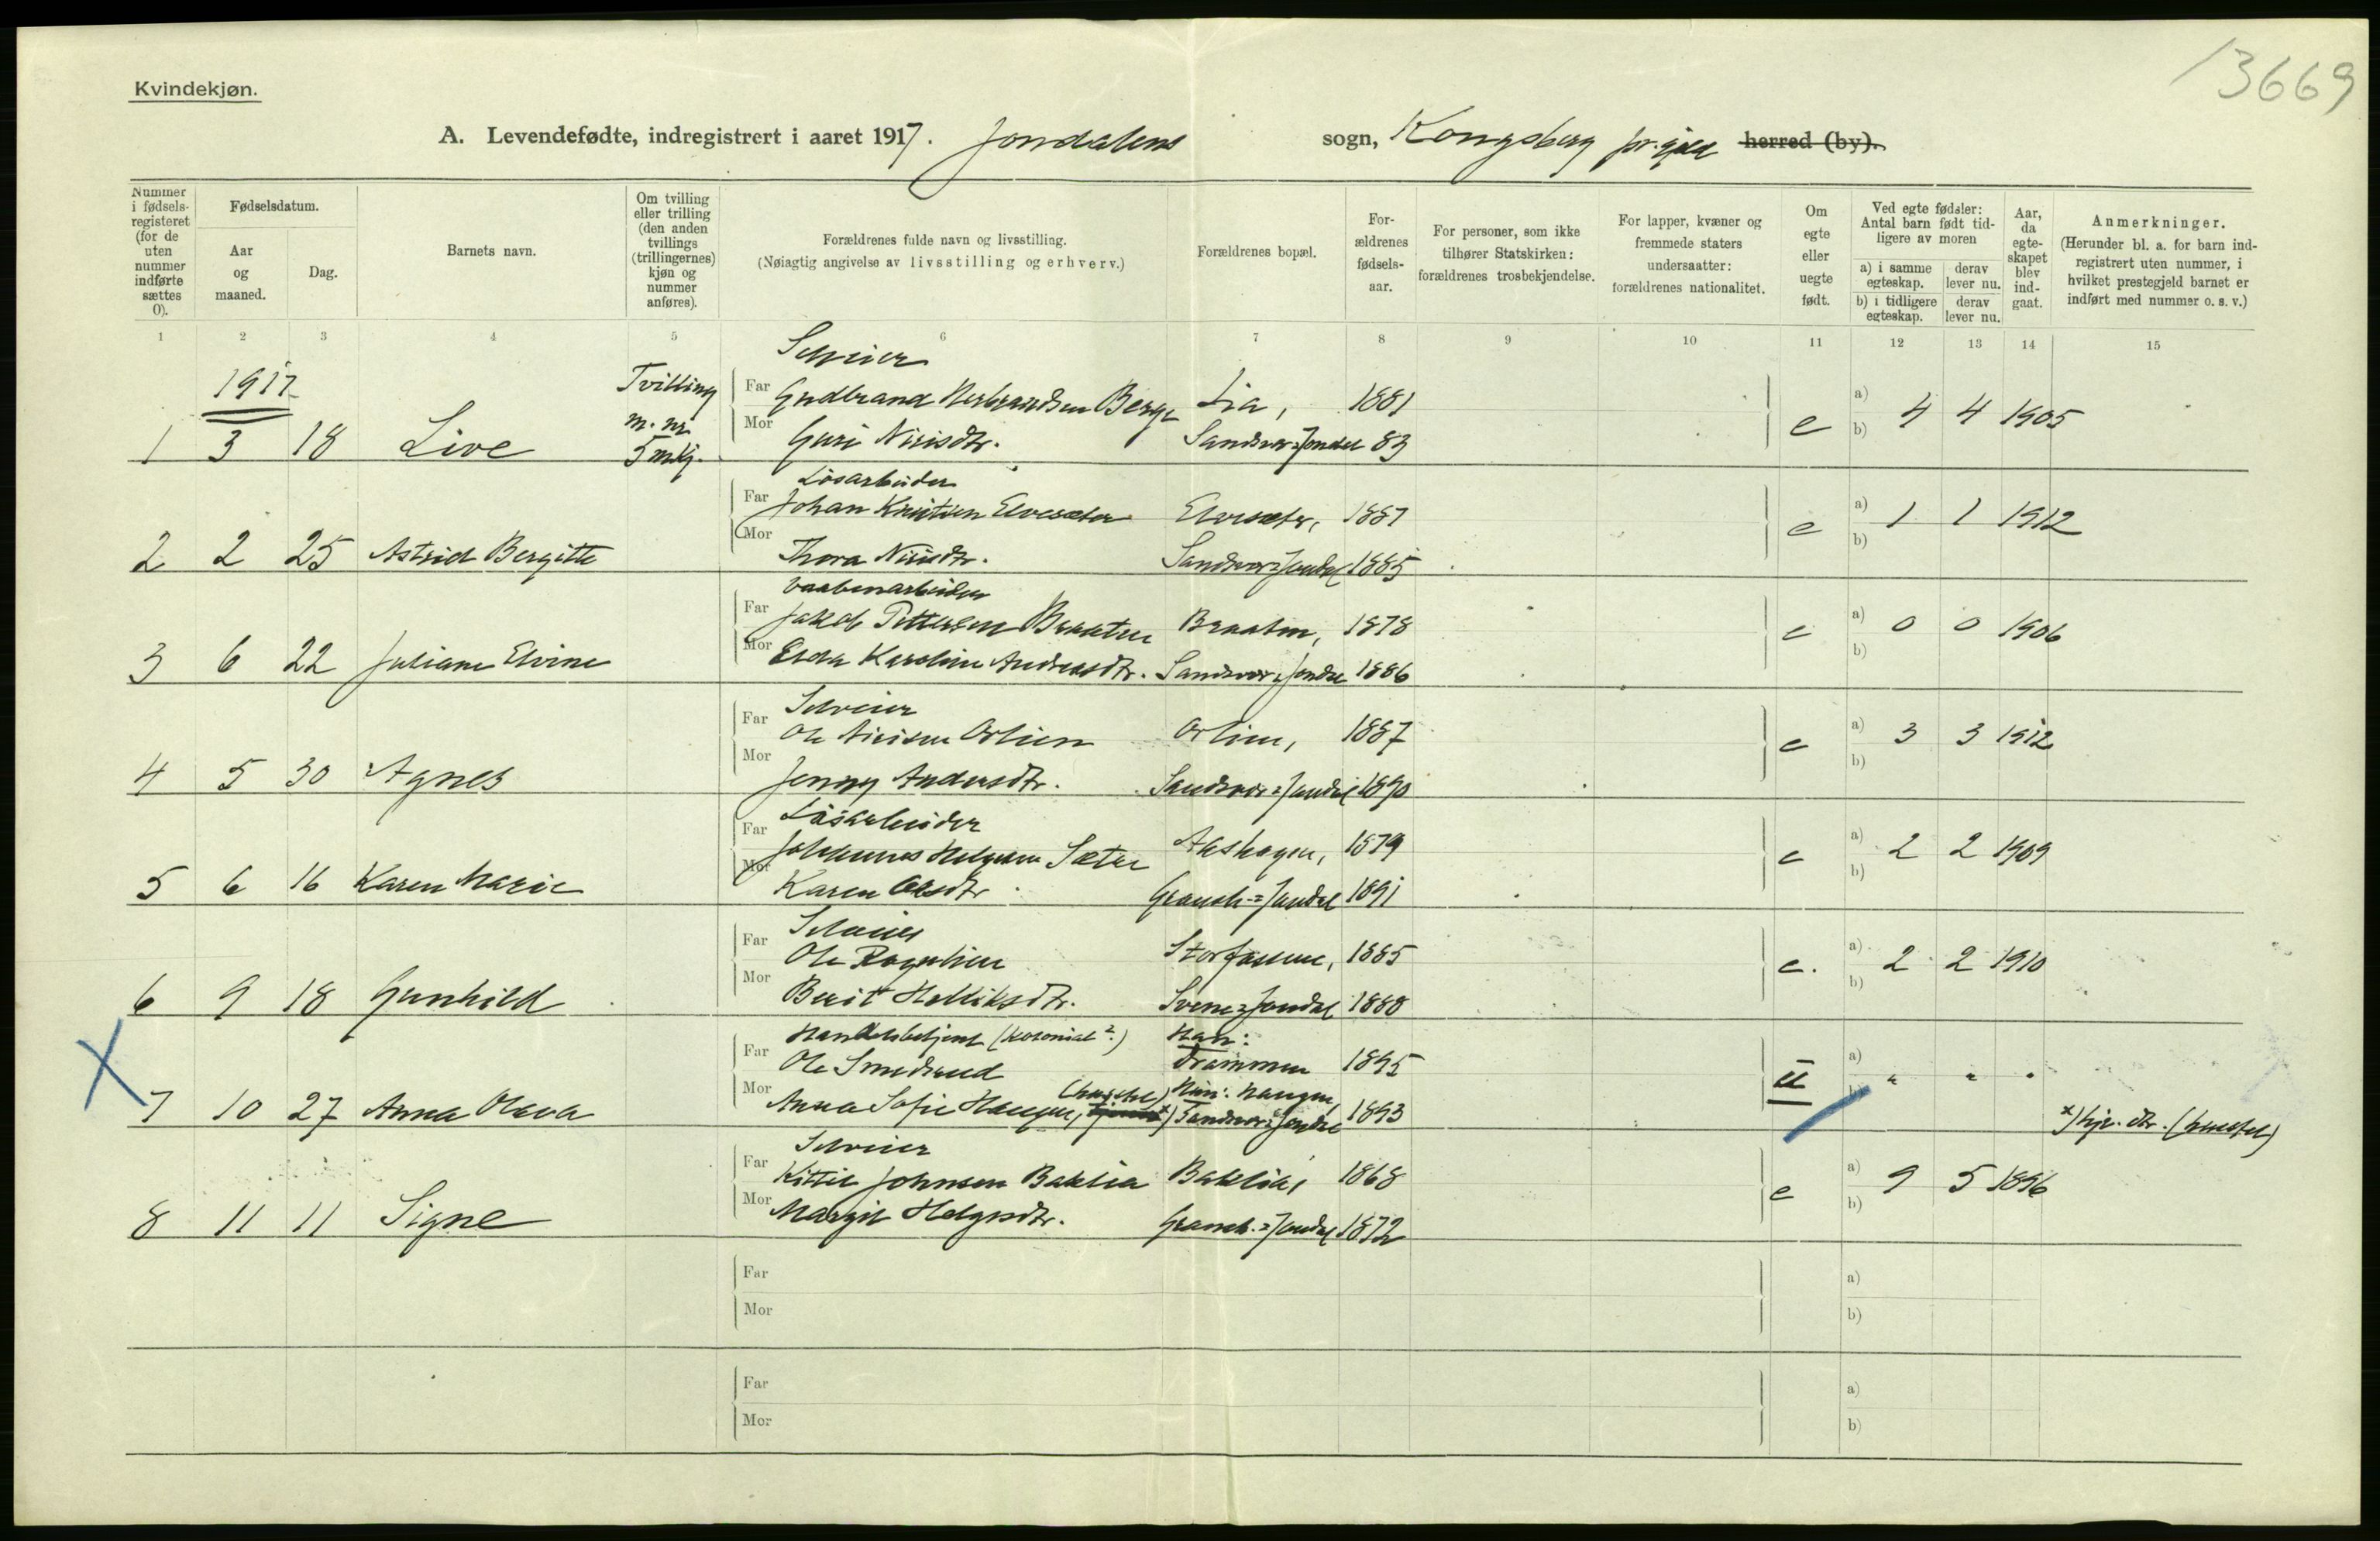 13669
Kvindekjøn.
A. Levendefødte, indregistrert i aaret 1917. Jondalens sogn, Kongsberg pr.gjeld herred (by).
Nummer i fødsels-registeret (for de uten nummer indførte sættes 0).
Fødselsdatum.
Aar og maaned.
Dag.
Barnets navn.
Om tvilling eller trilling (den anden tvillings (trillingernes) kjøn og nummer anføres).
Forældrenes fulde navn og livsstilling.
(Nøiagtig angivelse av livsstilling og erhverv.)
Forældrenes bopæl.
For-ældrenes fødsels-aar.
For personer, som ikke tilhører Statskirken: forældrenes trosbekjendelse.
For lapper, kvæner og fremmede staters undersaatter: forældrenes nationalitet.
Om egte eller uegte født.
Ved egte fødsler: Antal barn født tid-ligere av moren
a) i samme egteskap. derav lever nu.
b) i tidligere egteskap. derav lever nu.
Aar, da egte-skapet blev ind-gaat.
Anmerkninger.
(Herunder bl. a. for barn ind-registrert uten nummer, i hvilket prestegjeld barnet er indført med nummer o. s. v.)
1 2 3 4 5 6 7 8 9 10 11 12 13 14 15
1917
Selveier
Tvilling Far Gudbrand Herbrandsen Berge Lia, 1881 a)
1 3 18 Live m. nr. 5 mkj. Mor Guri Nirisdtr. Sandsvær-Jondal 83 e b) 4 4 1905
Løsarbeider
Far Johan Knutsen Elvesæter Elvesæter, 1887 a) 1 1 1912
2 2 25 Astrid Bergitte Mor Thora Nirisdtr. Sandsvær-Jondal 1885 e b)
Vaabenarbeider
Far Jakob Pettersen Braaten Braaten, 1878 a) 0 0 1906
3 6 22 Juliane Elvine Mor Karoline Andreasdtr. Sandsvær-Jondal 1886 e b)
Selveier
Far Ole Nirisen Orlien Orlien, 1887 a) 3 3 1912
4 5 30 Agnes Mor Jenny Andersdtr. Sandsvær-Jondal 1890 e b)
Løsarbeider
Far Johannes Helgesen Sæter 1879 a) 2 2 1909
5 6 16 Karen Marie Mor Karen Olsdtr. Gransh.-Jondal 1891 e b)
Selveier
Far Ole 1885 a) 2 2 1910
6 9 18 Gunhild Mor Berit Helliksdtr. Svene-Jondal 1888 e. b)
Handelsbetjent (kolonial?) Han:
Far Ole Smedsrud Drammen 1895 a)
(husstel) Hun: Haugen,
7 10 27 Anna Olava Mor Anna Sofie Haugen, x) Sandsvær-Jondal 1893 u b) " " "
x) hj. dtr. (husstel)
Selveier
Far Kittil Johnsen Baklia Baklia, 1868 a) 9 5 1896
8 11 11 Signe Mor Margit Helgesdtr. Gransh.-Jondal 1872 e b)
Far a)
Mor b)
Far a)
Mor b)